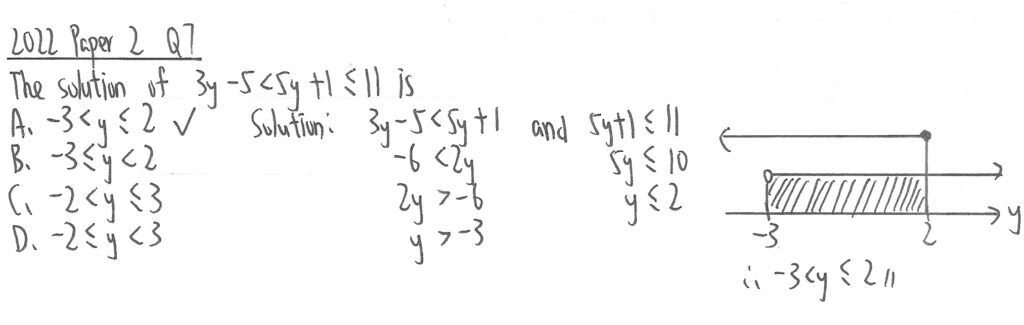 2022 Paper 2 Q7
The solution of 3y-5<5y+1≤11 is
A. -3<y≤2 ✓
B. -3≤y<2
C. -2<y≤3
D. -2≤y<3
Solution: 3y-5<5y+1 and 5y+1≤11
-6<2y 5y≤10
2y>-6 y≤2
y>-3
-3 2 y
∴ -3<y≤2 //